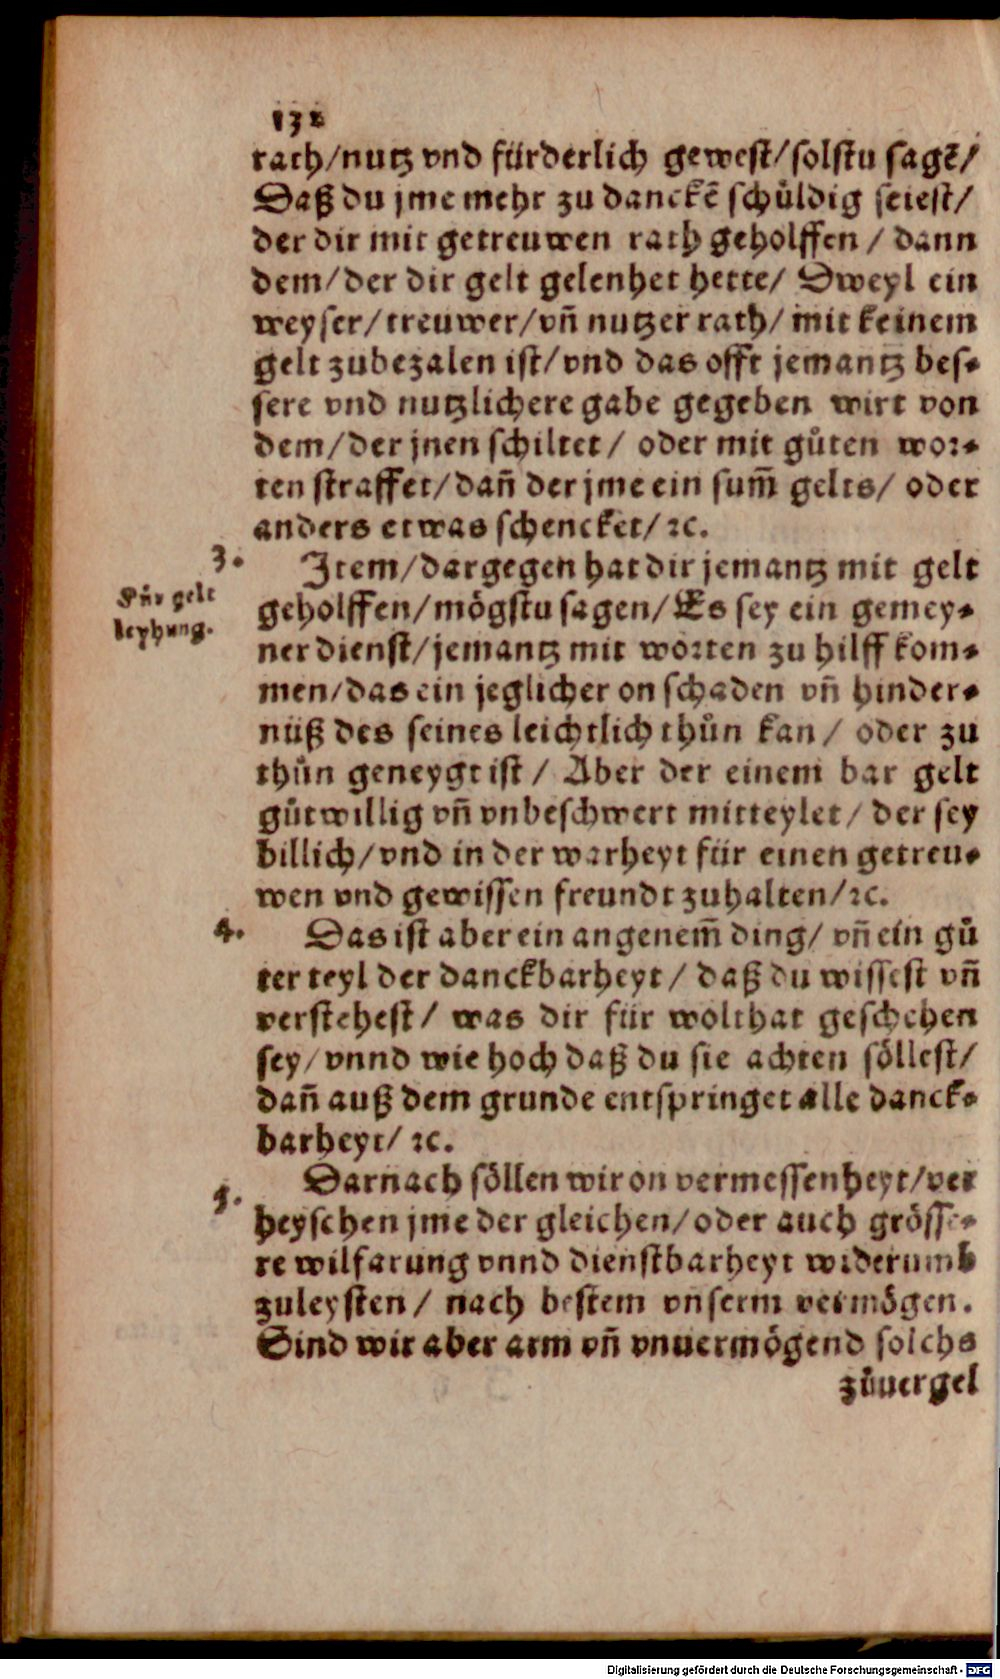 132
rath/nutz vnd fürderlich gewest/solstu sagē/
Daß du jme mehr zu danckē schüldig seiest/
der dir mit getreuwen rath geholffen / dann
dem/der dir gelt gelenhet hette/ Dweyl ein
weyser/treuwer/vñ nutzer rath/mit keinem
gelt zubezalen ist/vnd das offt jemantz bes⸗
sere vnd nutzlichere gabe gegeben wirt von
dem/der jnen schiltet/ oder mit gůten wor⸗
ten straffet/dañ der jme ein sum̃ gelts/ oder
anders etwas schencket/ꝛc.
3. Item/dargegen hat dir jemantz mit gelt
Für gelt
leyhung.
geholffen/mögstu sagen/Es sey ein gemey⸗
ner dienst/jemantz mit worten zu hilff kom⸗
men/das ein jeglicher on schaden vñ hinder⸗
nüß des seines leichtlich thůn kan/ oder zu
thůn geneygt ist/ Aber der einem bar gelt
gůtwillig vñ vnbeschwert mitteylet/ der sey
billich/vnd in der warheyt für einen getreu⸗
wen vnd gewissen freundt zuhalten/ꝛc.
4. Das ist aber ein angenem̃ ding/ vñ ein gů
ter teyl der danckbarheyt/ daß du wissest vñ
verstehest/ was dir für wolthat geschehen
sey/vnnd wie hoch daß du sie achten söllest/
dañ auß dem grunde entspringet alle danck⸗
barheyt/ ꝛc.
5. Darnach söllen wir on vermessenheyt/ver
heyschen jme der gleichen/oder auch grösse⸗
re wilfarung vnnd dienstbarheyt widerumb
zuleysten/ nach bestem vnserm vermögen.
Sind wir aber arm vñ vnuermögend solchs
zůuergel
Digitalisierung gefördert durch die Deutsche Forschungsgemeinschaft - DFG